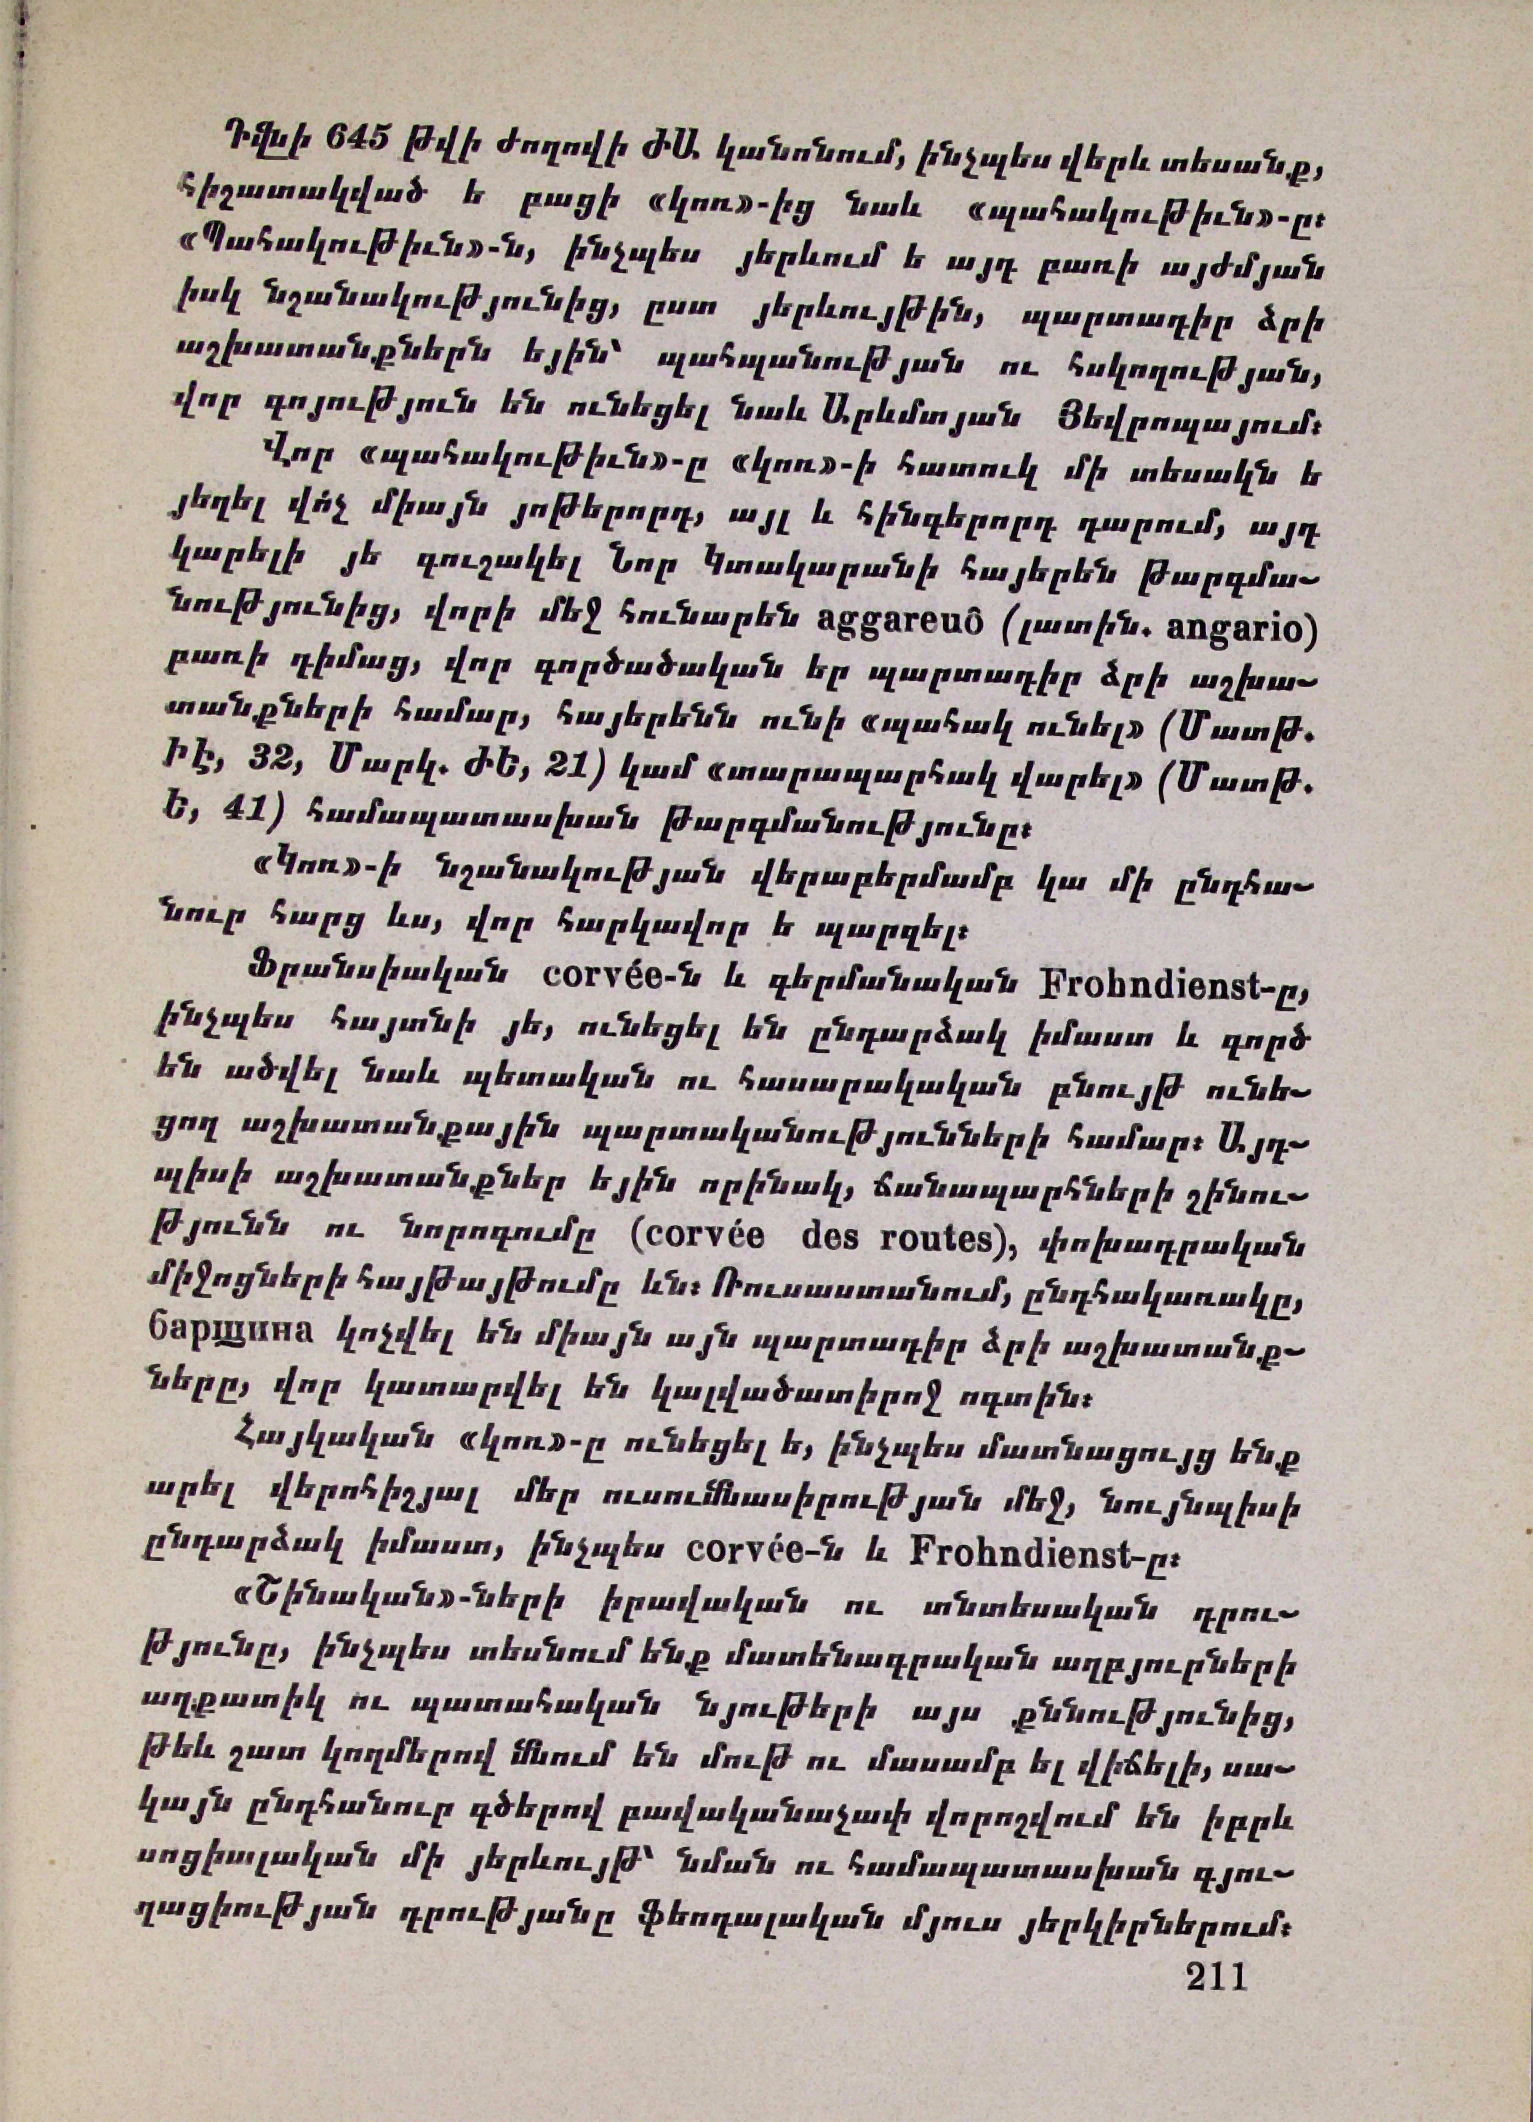 Դվնի 645 թվի ժողովի ԺԱ կանոնում, ինչպես վերև տեսանք,
հիշատակված ե բացի «կոռ»-ից նաև «պահակութիւն»-ը։
«Պահակութիւն»-ն, ինչպես յերևում ե այդ բառի այժմյան
իսկ նշանակությունից, ըստ յերևույթին, պարտադիր ձրի
աշխատանքներն եյին՝ պահպանության ու հսկողության,
վոր գոյություն են ունեցել նաև Արևմտյան Յեվրոպայում։
Վոր «պահակութիւն»-ը «կոռ»-ի հատուկ մի տեսակն ե
յեղել վո՛չ միայն յոթերորդ, այլ և հինգերորդ դարում, այդ
կարելի յե գուշակել Նոր Կտակարանի հայերեն թարգմա-
նությունից, վորի մեջ հունարեն aggareuô (լատին. angario)
բառի դիմաց, վոր գործածական եր պարտադիր ձրի աշխա-
տանքների համար, հայերենն ունի «պահակ ունել» (Մատթ.
ԻԷ, 32, Մարկ. ԺԵ, 21) կամ «տարապարհակ վարել» (Մատթ.
Ե, 41) համապատասխան թարգմանությունը։
«Կոռ»-ի նշանակության վերաբերմամբ կա մի ընդհա-
նուր հարց ևս, վոր հարկավոր ե պարզել։
Ֆրանսիական corvée-ն և գերմանական Frohndienst-ը,
ինչպես հայտնի յե, ունեցել են ընդարձակ իմաստ և գործ
են ածվել նաև պետական ու հասարակական բնույթ ունե-
ցող աշխատանքային պարտականությունների համար։ Այդ-
պիսի աշխատանքներ եյին որինակ, ճանապարհների շինու-
թյունն ու նորոգումը (corvée des routes), փոխադրական
միջոցների հայթայթումը ևն։ Ռուսաստանում, ընդհակառակը,
барщина կոչվել են միայն այն պարտադիր ձրի աշխատանք-
ները, վոր կատարվել են կալվածատիրոջ ոգտին։
Հայկական «կոռ»-ը ունեցել ե, ինչպես մատնացույց ենք
արել վերոհիշյալ մեր ուսումնասիրության մեջ, նույնպիսի
ընդարձակ իմաստ, ինչպես corvée-ն և Frohndienst-ը։
«Շինական»-ների իրավական ու տնտեսական դրու-
թյունը, ինչպես տեսնում ենք մատենագրական աղբյուրների
աղքատիկ ու պատահական նյութերի այս քննությունից,
թեև շատ կողմերով մնում են մութ ու մասամբ ել վիճելի, սա-
կայն ընդհանուր գծերով բավականաչափ վորոշվում են իբրև
սոցիալական մի յերևույթ՝ նման ու համապատասխան գյու-
ղացիության դրությանը ֆեոդալական մյուս յերկիրներում։
211